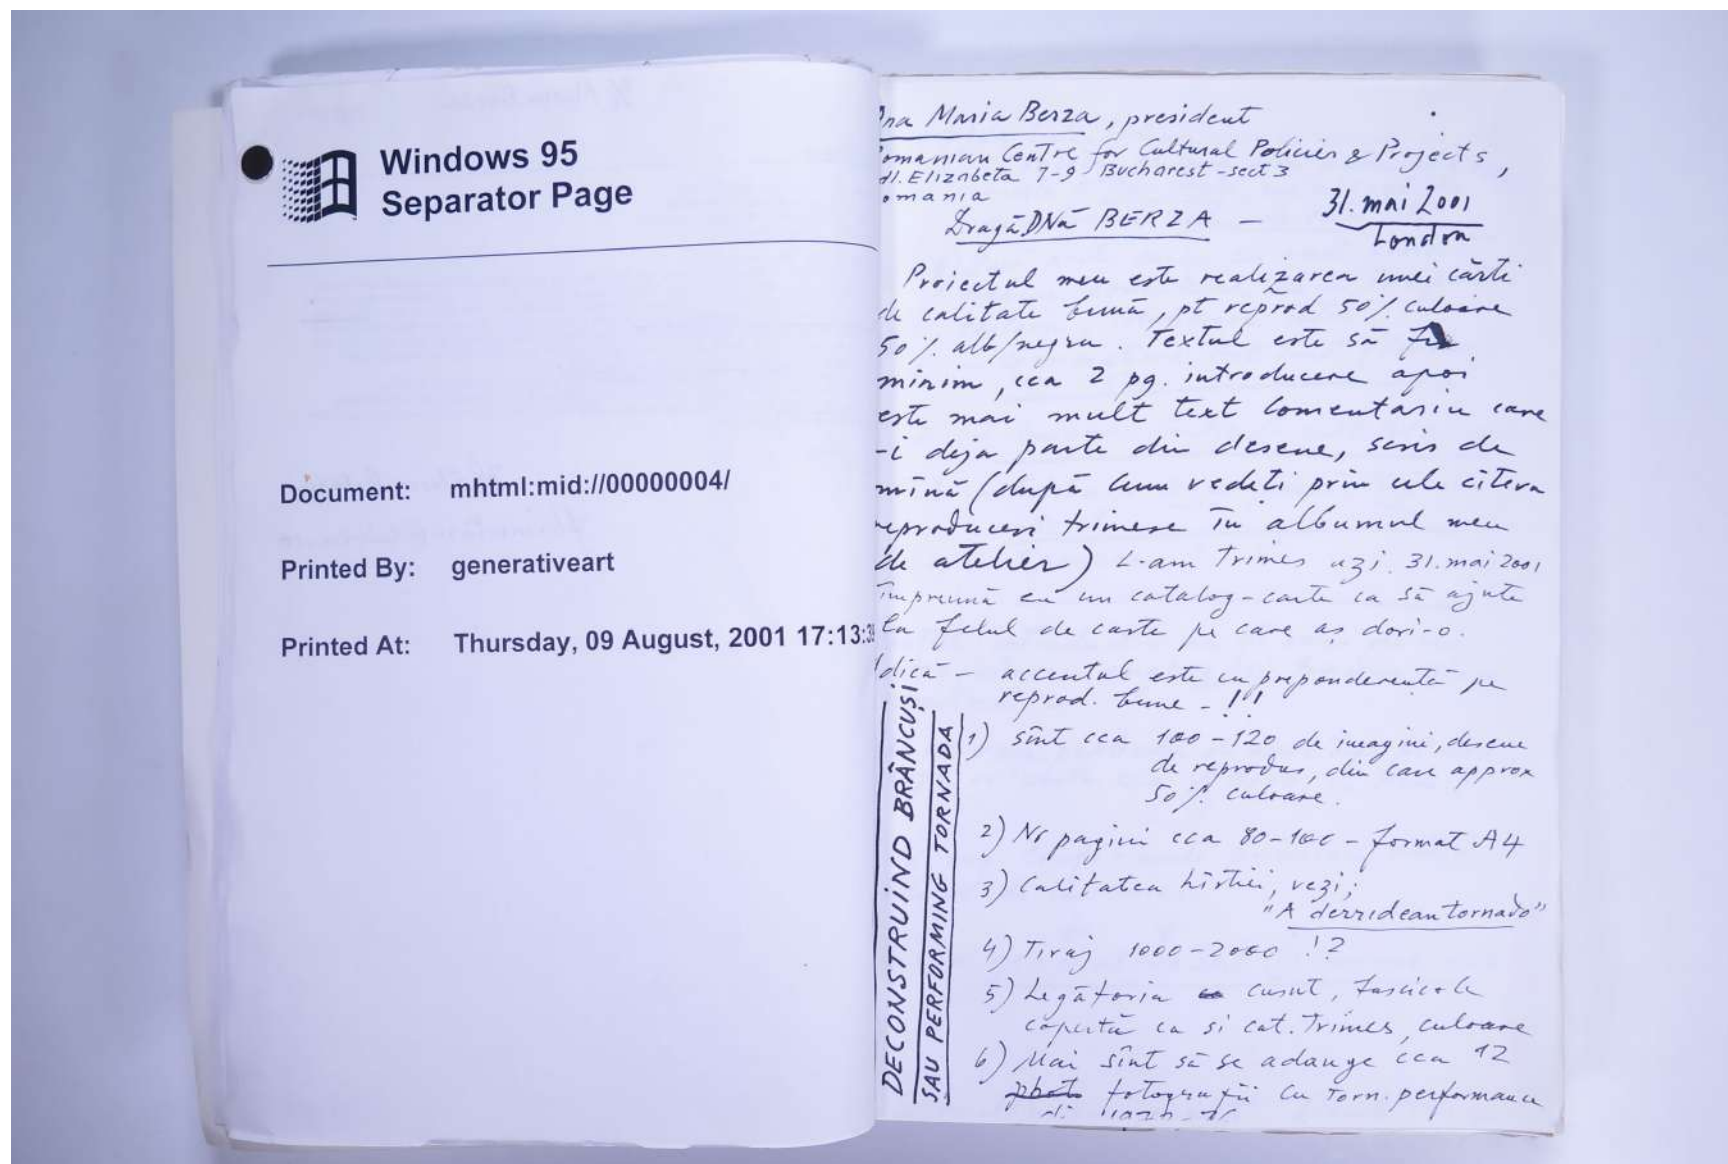 Windows 95
Separator Page
Document: mhtml:mid://00000004/
Printed By: generativeart
Printed At: Thursday, 09 August, 2001 17:13:
na Maria Berza, president
omanian Centre for Cultural Policies & Projects,
dl. Elizabeta 7-9 Bucharest - sect 3
omania
31. mai 2001
Dragă DNă BERZA —
London
Proiectul meu este realizarea unei cărti
de calitate bună, pt reprod 50% culoare
50% alb/negru. Textul este să fie
minim, cca 2 pg. introducere apoi
este mai mult text comentariu care
-i deja parte din desene, scris de
mînă (după cum vedeti prin cele citeva
reproduceri trimese în albumul meu
de atelier) L-am trimes azi. 31. mai 2001
împreună cu un catalog-carte ca să ajute
la felul de carte pe care aș dori-o.
dică — accentul este cu preponderentă pe
reprod. bune - !!!
1) sînt cca 100-120 de imagini, desene
de reprodus, din care approx
50% culoare.
2) Nr pagini cca 80-100 - format A4
3) Calitatea hîrtiei, vezi;
"A derridean tornado"
4) Tiraj 1000-2000 !?
5) Legătoria cusut, fascicole
copertă ca si cat. trimes, culoare
6) Mai sînt să se adauge cca 12
photo fotografii cu Torn. performance
DECONSTRUIND BRÂNCUȘI
SAU PERFORMING TORNADA